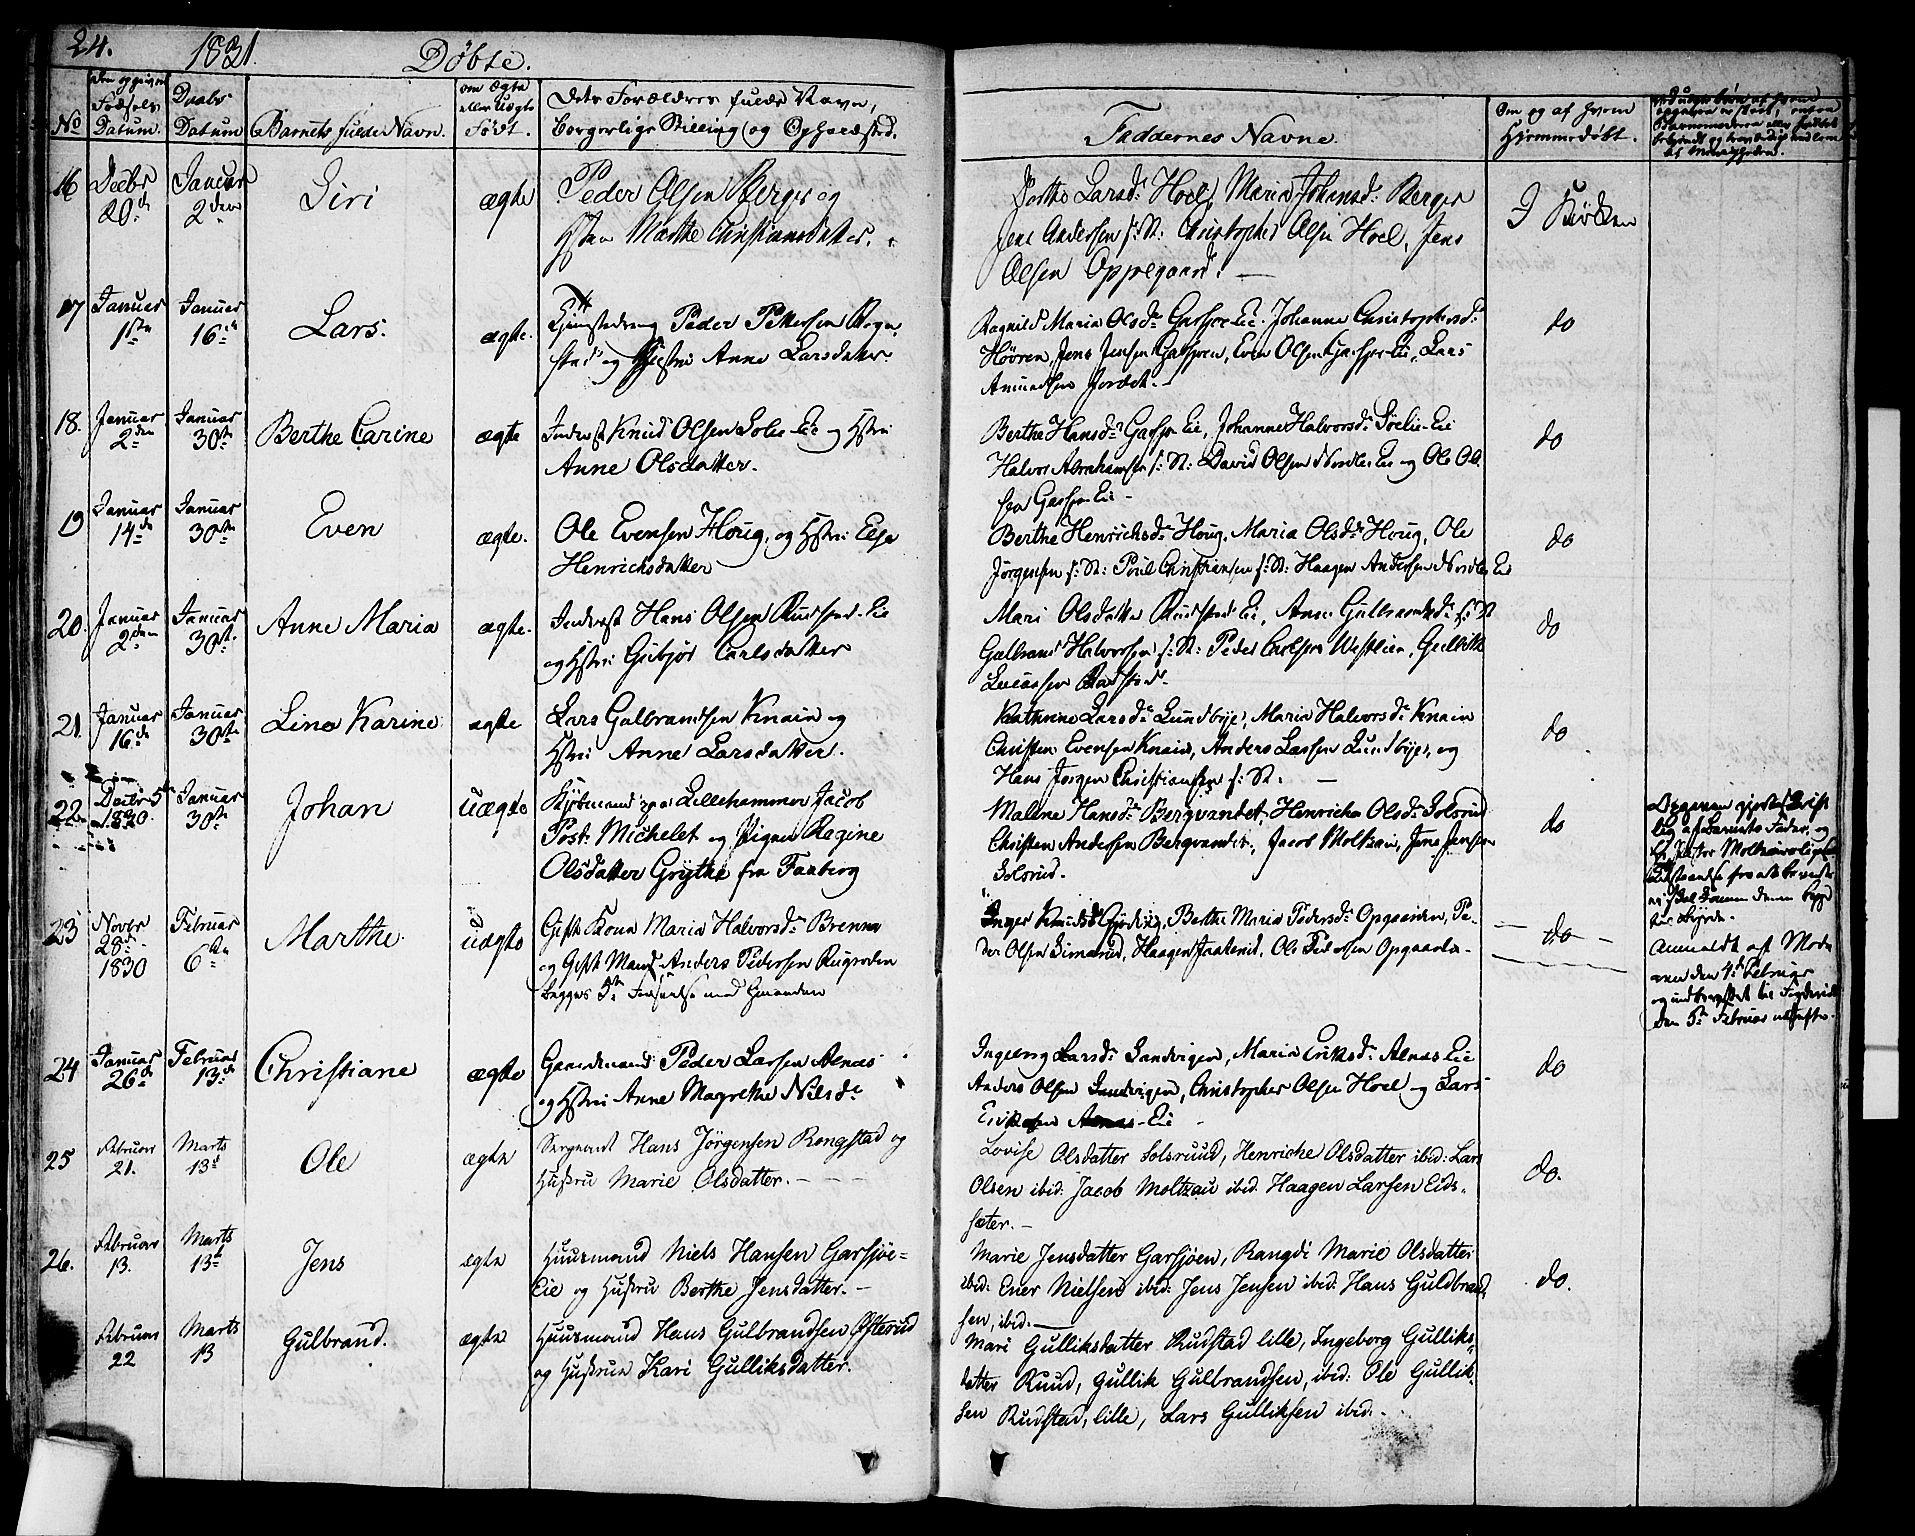 24. 1831. Døbte.
No
Fødsels Datum.
Daabs Datum
Barnets fulde Navn.
om Ægte eller Uægte Født.
Dets Forældres fulde Navn,
borgerlige Stilling og Opholdsted.
Faddernes Navne.
Om og af hvem
Hjemmedøbt.
16 Decbr 20de Januar 2den Siri ægte Peder Olsen Berger og
Hstru Marthe Christiansdatter.
Larsd: Hoel, Maria Johansd: Berger
Jens Andersen s: St: Christopher Olsen Hoel, Jens
Olsen Oppegaard.
I Kirken
17 Januar 1ste Januar 16de Lars. ægte. Peder Pettersen
og Hustru Anne Larsdatter.
Ragnild Maria Olsd: Johanne Christophersd:
Jens Jensen Even Olsen Lars
Amundsen
do
18. Januar 2den Januar 30te Berthe Carine ægte Inderst Knud Olsen Solie Eie og Hstru
Anne Olsdatter.
Berthe Hansd: Johanne Halvorsd: Eie
Halvor Abrahamsen s: St: David Olsen Nordlie Eie og Ole Ol-
sen Eie
do
19 Januar 14de Januar 30te Even ægte. Ole Evensen Houg, og Hstru Else
Henrichsdatter
Berthe Henrichsd: Houg, Maria Olsd: Houg, Ole
Jørgensen s: St: Poul Christiansen s: St: Haagen Andersen Nordlie Eie
do
20. Januar 2den Januar 30te Anne Maria ægte. Inderst Hans Olsen Rudstad Eie
og Hstru Gubjør Carlsdatter
Mari Olsdatter Rudstad Eie, Anne Gulbrandsd: s: St
Gulbrand Halvorsen s: St: Peder Carlsen Westlien, Gullik
do
21. Januar 16de Januar 30te Lina Karine ægte Lars Gulbrandsen Knain og
Hstru Anne Larsdatter.
Kathrine Larsd: Lundbye, Maria Halvorsd: Knain
Christen Evensen Knain, Anders Larsen Lundbye, og
Hans Jørgen Christiansen s: St:
do
22 Decbr 5te 1830. Januar 30te Johan Uægte Kjøbmand paa Lillehammer Jacob
Post Michelet og Pigen Ragine
Olsdatter Grythe fra Faaberg
Malene Hansd: Bergvandet, Henricha Olsd: Solsrud
Christen Andersen Bergvandet, Jacob Moltzau, Jens Jensen
Solsrud.
do
23 Novbr 28de 1830 Februar 6te Marthe. Uægte Gift Kone Maria Halvorsd: Brenna
og Gift Mand Anders Pedersen
begges 1te Forseelse
Inger Berthe Maria Pedersd: Opgaarden, Pe-
der Olsen Simarud, Haagen Ole Pedersen Opgaarden
do
Anmeldt af Mode-
ren den 4de Februar
og indberettet til
den 5te Februar
24 Januar 26de Februar 13de Christiane ægte Gaardmand Peder Larsen Alnæs
og Hstru Anne Magrethe Nilsd:
Ingeborg Larsd: Sandvigen, Maria Eriksd: Alnæs Eie
Anders Olsen Sandvigen, Christopher Olsen Hoel og Lars
Eriksen Alnæs-Eie
do
25 Februar 21. Marts 13de Ole ægte Sergeant Hans Jørgensen Rongstad og
Hustru Marie Olsdatter.
Lovise Olsdatter Solsruud, Henricke Olsdatter ibid: Lars
Olsen ibid: Jacob Moltzau ibid. Haagen Larsen Eids-
sæter.
do.
26. Februar 13. Marts 13de Jens ægte Huusmand Niels Hansen Garsjøe-
Eie og Hustru Berthe Jensdatter.
Marie Jensdatter Garsjøen, Rangdi Marie Olsdatter
ibid: Ener Nielsen ibid: Jens Jensen ibid: Hans Guldbrand-
sen, ibid.
do.
Februar 22 Marts 13 Gulbrand. ægte Huusmand Hans Gulbrandsen
og Hustrue Kari Gulliksdatter.
Mari Gulliksdatter Rudstad lille, Ingeborg Gulliks-
datter Ruud, Gullik Gulbrandsen, ibid: Ole Gullik-
sen Rudstad, lille, Lars Gulliksen ibid.